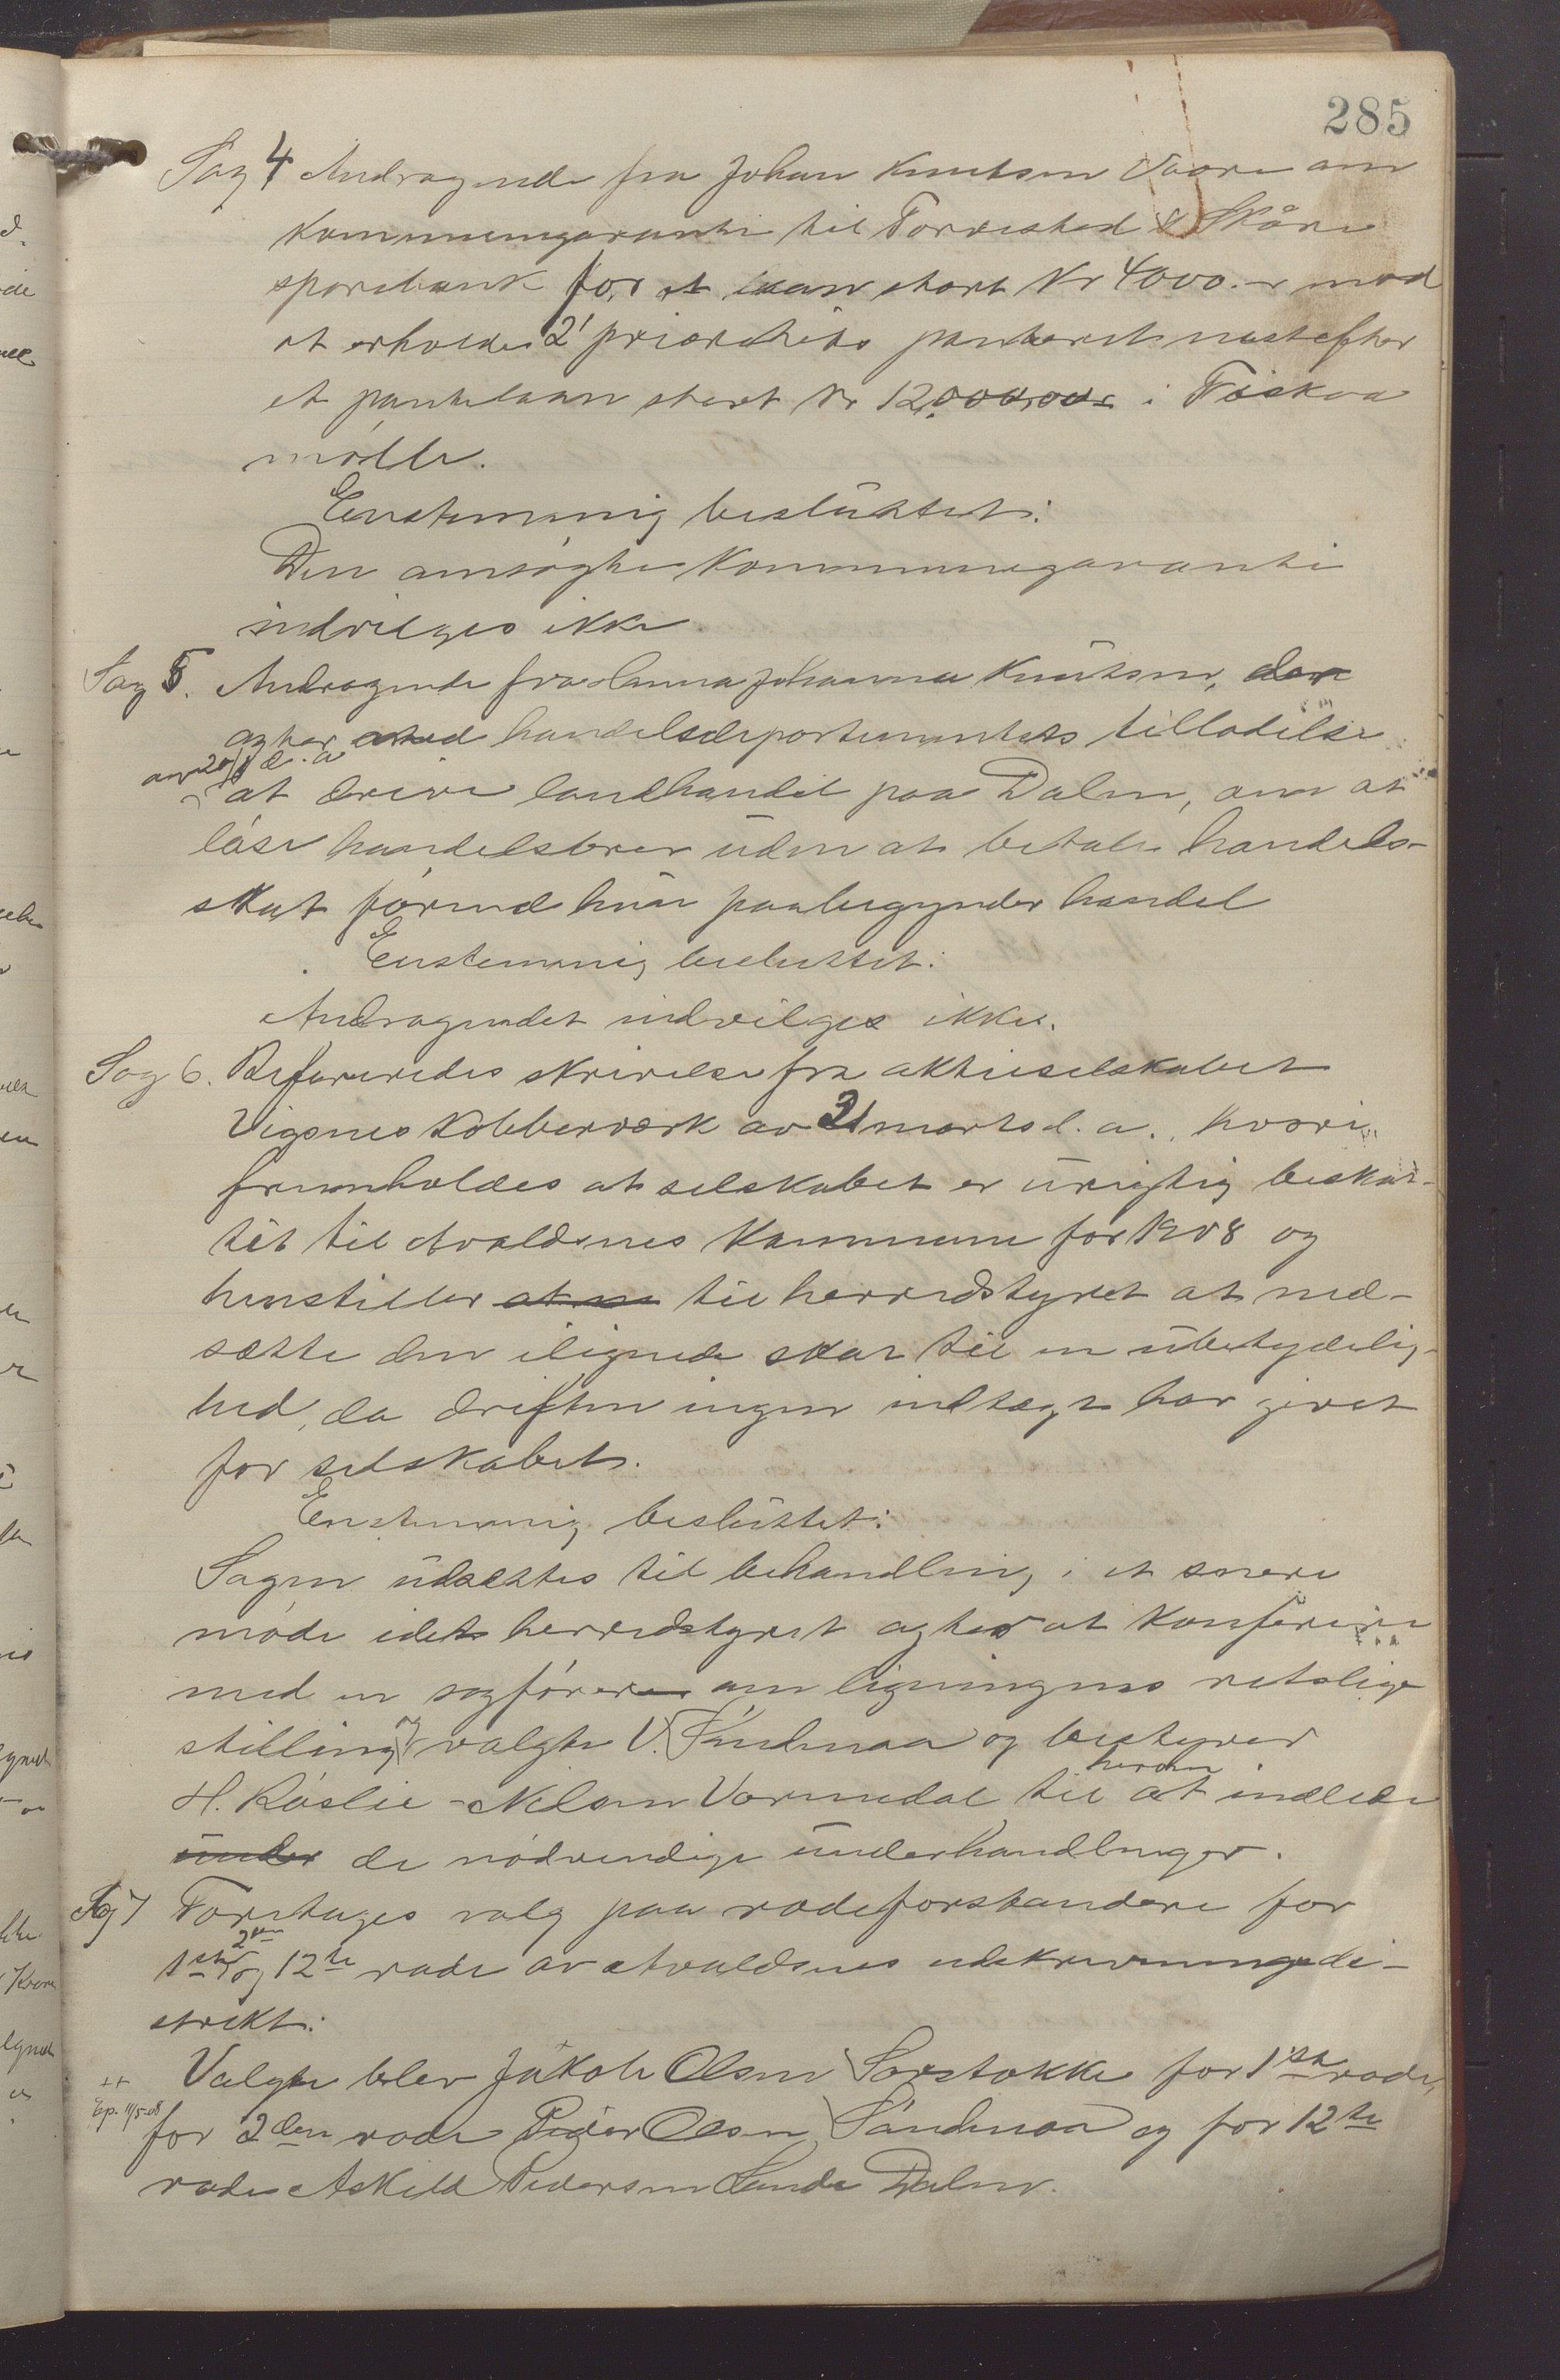 285
Sag 4 Andragende fra Johan Knutsen Vaare om
kommunegaranti til Torvestad & Skåre
sparebank for et laan stort Kr 4000.- mod
at erholde 2' prioritets panteret nestefter
et pantelaan stort Kr 12,000,00 i Fiskaa
mølle.
Enstemmig besluttet:
Den ansøgte kommunegaranti
indvilges ikke.
Sag 5. Andragende fra Anna Johanna Knutsen, der
agter med handelsdepartementets tilladelse
av 20/1 d. a
at drive landhandel paa Dalen, om at
løse handelsbrev uden at betale handels-
skat førend hun paabegynder handel
Enstemmig besluttet:
Andragendet indvilges ikke.
Sag 6. Refereredes skrivelse fra aktieselskabet
Vigsnes Kobberværk av 31 marts d. a., hvori
fremholdes at selskabet er urigtig beskat-
tet til Avaldsnes kommune for 1908 og
henstiller at ne til herredstyret at ned-
sætte den ilignede skat til en ubetydelig-
hed, da driften ingen indtægt har givet
for selskabet.
Enstemmig besluttet:
Sagen udsættes til behandling i et senere
møde idet herredstyret agter at konferere
med en sagfører om ligningens retslige
stilling og valgte V. Sundnaa og bestyrer
H. Røslie - Nilsen Vormedal til herom at indlede
under de nødvendige underhandlinger.
Sag 7 Foretages valg paa rodeforstandere for
1ste 2den og 12te rode av Avaldsnes udskrivningsdi-
strikt:
Valgte blev Jakob Olsen Sørstokke for 1ste rode,
++
Ep. 11/5-08
for 2den rode Peder Olsen Sundnaa og for 12te
rode Askild Pedersen Sande Dalen.